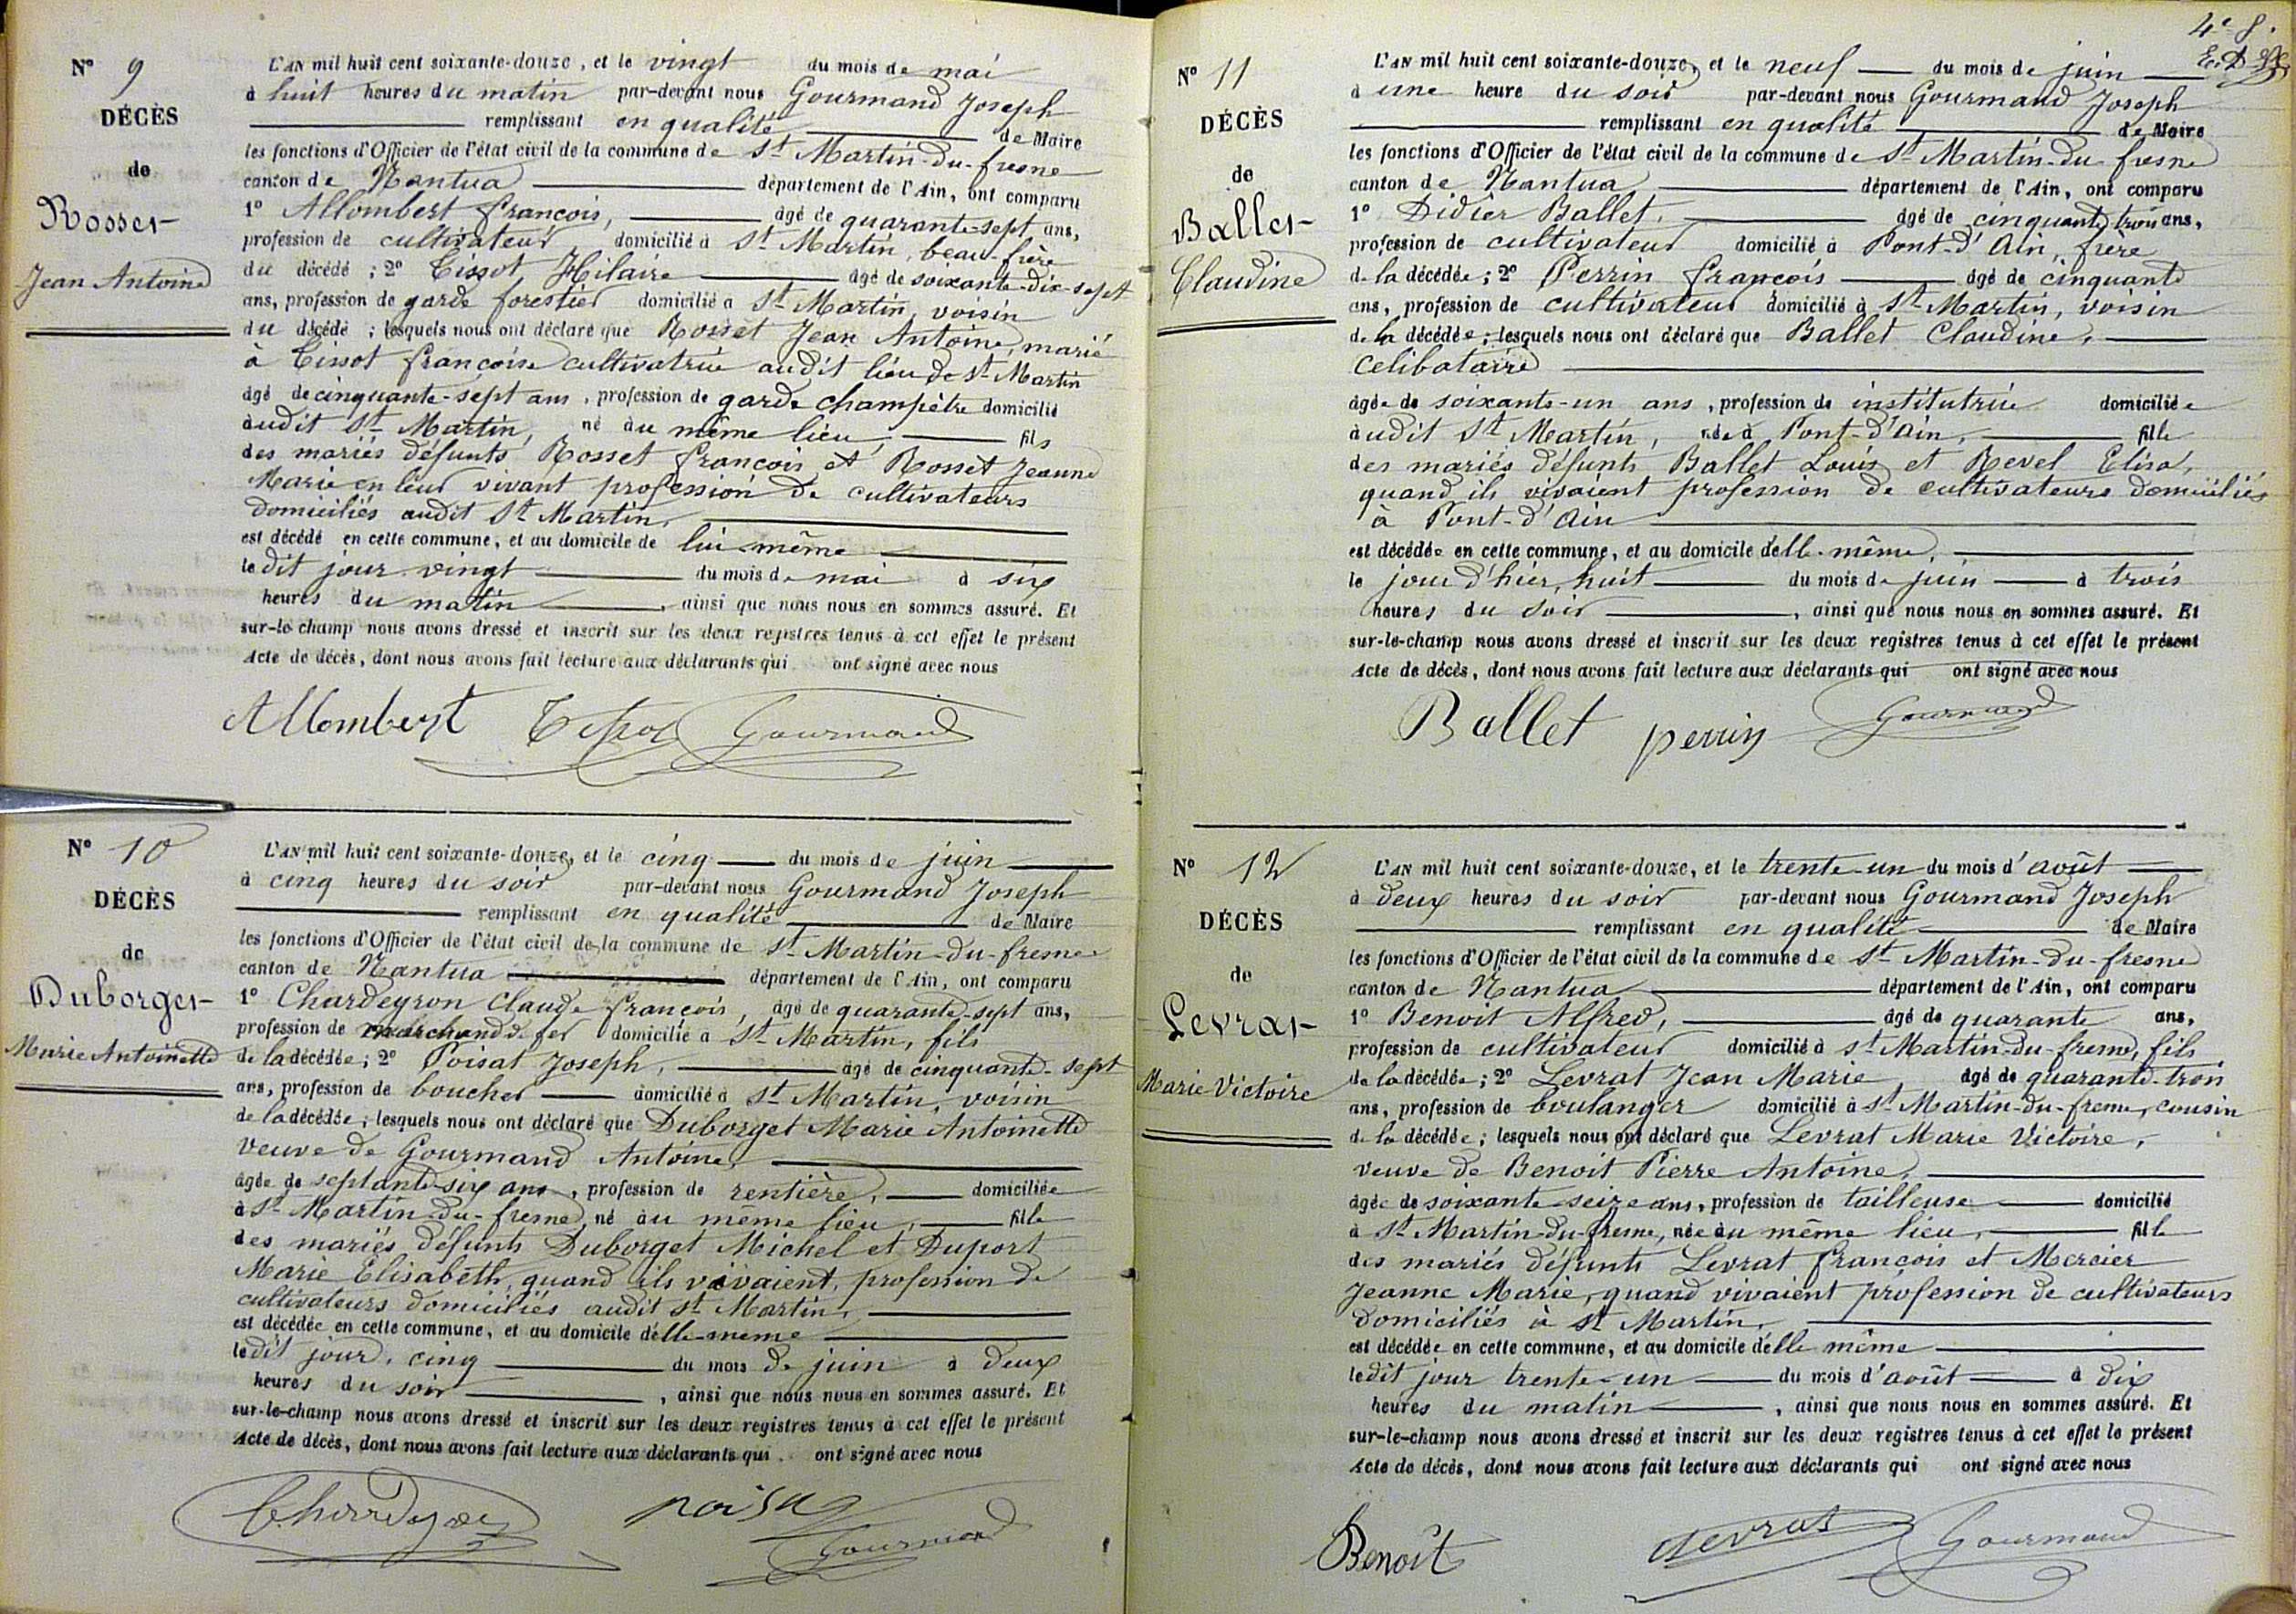 N° 9
DÉCÈS
de
Rosset
Jean Antoine
L'AN mil huit cent soixante-douze, et le vingt du mois de mai
à huit heures du matin par-devant nous Gourmand Joseph
remplissant en qualité de Maire
les fonctions d'Officier de l'état civil de la commune de St Martin-du-fresne
canton de Nantua département de l'Ain, ont comparu
1° Allombert françois, âgé de quarante-sept ans,
profession de cultivateur, domicilié à St Martin, beau-frère
du décédé ; 2° Tissot Hilaire âgé de soixante-dix-sept
ans, profession de garde forestier domicilié à St Martin, voisin
du décédé ; lesquels nous ont déclaré que Rosset Jean Antoine, marié
à Tissot françoise cultivatrice audit lieu de St Martin
âgé de cinquante-sept ans, profession de garde champêtre domicilié
audit St Martin, né au même lieu fils
des mariés défunts Rosset françois et Rosset Jeanne
Marie en leur vivant profession de cultivateurs
domiciliés audit St Martin,
est décédé en cette commune, et au domicile de lui-même
ledit jour vingt du mois de mai à six
heures du matin, ainsi que nous nous en sommes assuré. Et
sur-le-champ nous avons dressé et inscrit sur les deux registres tenus à cet effet le présent
Acte de décès, dont nous avons fait lecture aux déclarants qui ont signé avec nous
Allombert Tissot Gourmand
N° 10
DÉCÈS
de
Duborget
Marie Antoinette
L'AN mil huit cent soixante-douze, et le cinq du mois de juin
à cinq heures du soir par-devant nous Gourmand Joseph
remplissant en qualité de Maire
les fonctions d'Officier de l'état civil de la commune de St Martin-du-fresne
canton de Nantua département de l'Ain, ont comparu
1° Chardeyron Claude françois, âgé de quarante-sept ans,
profession de marchand de fer domicilié à St Martin, fils
de la décédée ; 2° Poisat Joseph, âgé de cinquante-sept
ans, profession de boucher domicilié à St Martin, voisin
de la décédée ; lesquels nous ont déclaré que Duborget Marie Antoinette
veuve de Gourmand Antoine,
âgée de septante-six ans, profession de rentière, domiciliée
à St Martin-du-fresne, né au même lieu, fille
des mariés défunts Duborget Michel et Duport
Marie Elisabeth, quand ils vivaient, profession de
cultivateurs domiciliés audit St Martin,
est décédée en cette commune, et au domicile d'elle-même
ledit jour, cinq du mois de juin à deux
heures du soir, ainsi que nous nous en sommes assuré. Et
sur-le-champ nous avons dressé et inscrit sur les deux registres tenus à cet effet le présent
Acte de décès, dont nous avons fait lecture aux déclarants qui ont signé avec nous
poisat
Gourmand
4e f.
N° 11
DÉCÈS
de
Ballet
Claudine
L'AN mil huit cent soixante-douze, et le neuf du mois de juin
à une heure du soir par-devant nous Gourmand Joseph
remplissant en qualité de Maire
les fonctions d'Officier de l'état civil de la commune de St Martin-du-fresne
canton de Nantua département de l'Ain, ont comparu
1° Didier Ballet, âgé de cinquante trois ans,
profession de cultivateur domicilié à Pont-d'Ain, frère
de la décédée ; 2° Perrin françois âgé de cinquante
ans, profession de cultivateur domicilié à St Martin, voisin
de la décédée ; lesquels nous ont déclaré que Ballet Claudine,
célibataire
âgée de soixante-un ans, profession de institutrice domiciliée
audit St Martin, née à Pont-d'Ain, fille
des mariés défunts Ballet Louis et Revel Elisa,
quand ils vivaient profession de cultivateurs domiciliés
à Pont-d'Ain
est décédée en cette commune, et au domicile d'elle-même,
le jour d'hier, huit du mois de juin à trois
heures du soir, ainsi que nous nous en sommes assuré. Et
sur-le-champ nous avons dressé et inscrit sur les deux registres tenus à cet effet le présent
Acte de décès, dont nous avons fait lecture aux déclarants qui ont signé avec nous
Ballet perrin Gourmand
N° 12
DÉCÈS
de
Levrat
Marie Victoire
L'AN mil huit cent soixante-douze, et le trente-un du mois d'août
à deux heures du soir par-devant nous Gourmand Joseph
remplissant en qualité de Maire
les fonctions d'Officier de l'état civil de la commune de St Martin-du-fresne
canton de Nantua département de l'Ain, ont comparu
1° Benoit Alfred, âgé de quarante ans,
profession de cultivateur domicilié à St Martin-du-fresne, fils
de la décédée ; 2° Levrat Jean Marie, âgé de quarante-trois
ans, profession de boulanger domicilié à St Martin-du-fresne, cousin
de la décédée ; lesquels nous ont déclaré que Levrat Marie Victoire,
veuve de Benoit Pierre Antoine,
âgée de soixante seize ans, profession de tailleuse domicilié
à St Martin-du-fresne, née au même lieu, fille
des mariés défunts Levrat françois et Mercier
Jeanne Marie, quand vivaient profession de cultivateurs
domiciliés à St Martin,
est décédée en cette commune, et au domicile d'elle même
ledit jour trente-un du mois d'août à dix
heures du matin, ainsi que nous nous en sommes assuré. Et
sur-le-champ nous avons dressé et inscrit sur les deux registres tenus à cet effet le présent
Acte de décès, dont nous avons fait lecture aux déclarants qui ont signé avec nous
Benoit Levrat Gourmand